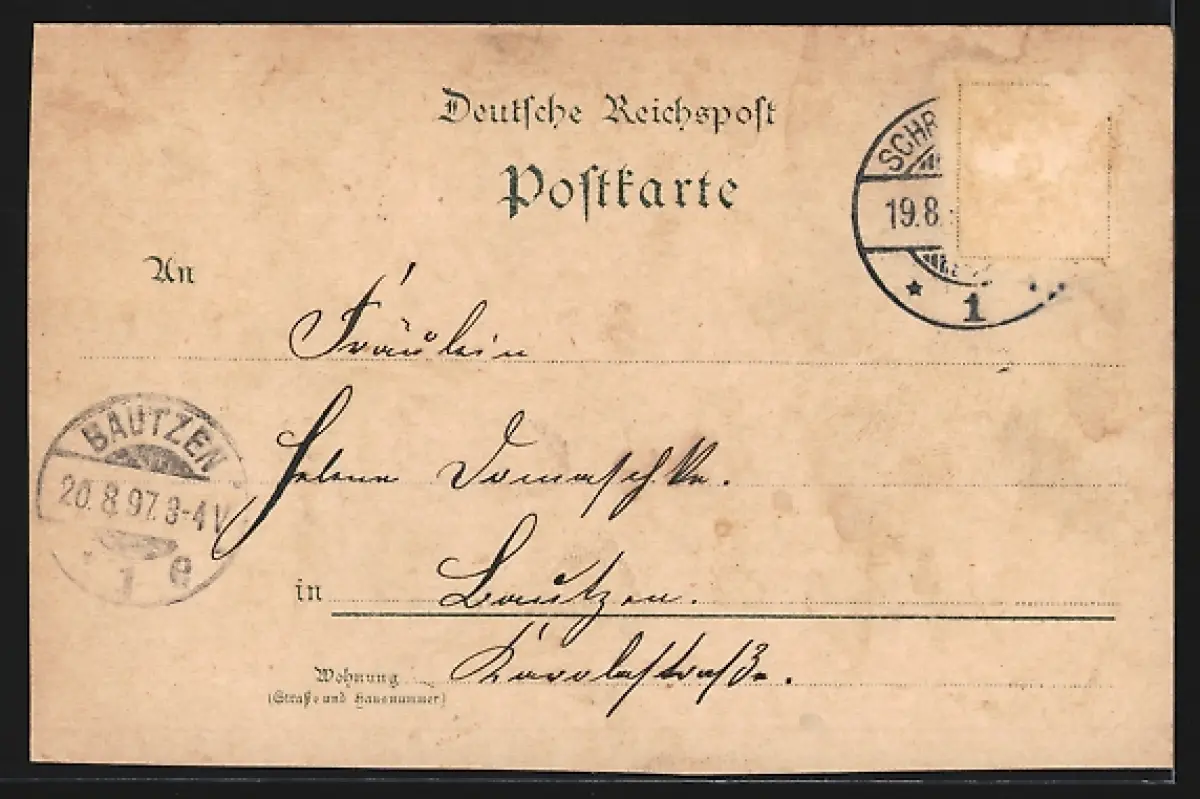 Deutsche Reichspost
Postkarte
SCHR
19.8.
1
An
Fräulein
Helene Domaschke.
BAUTZEN
20.8.97.3-4V
1 e
in Bautzen.
Wohnung Karolastraße.
(Straße und Hausnummer)